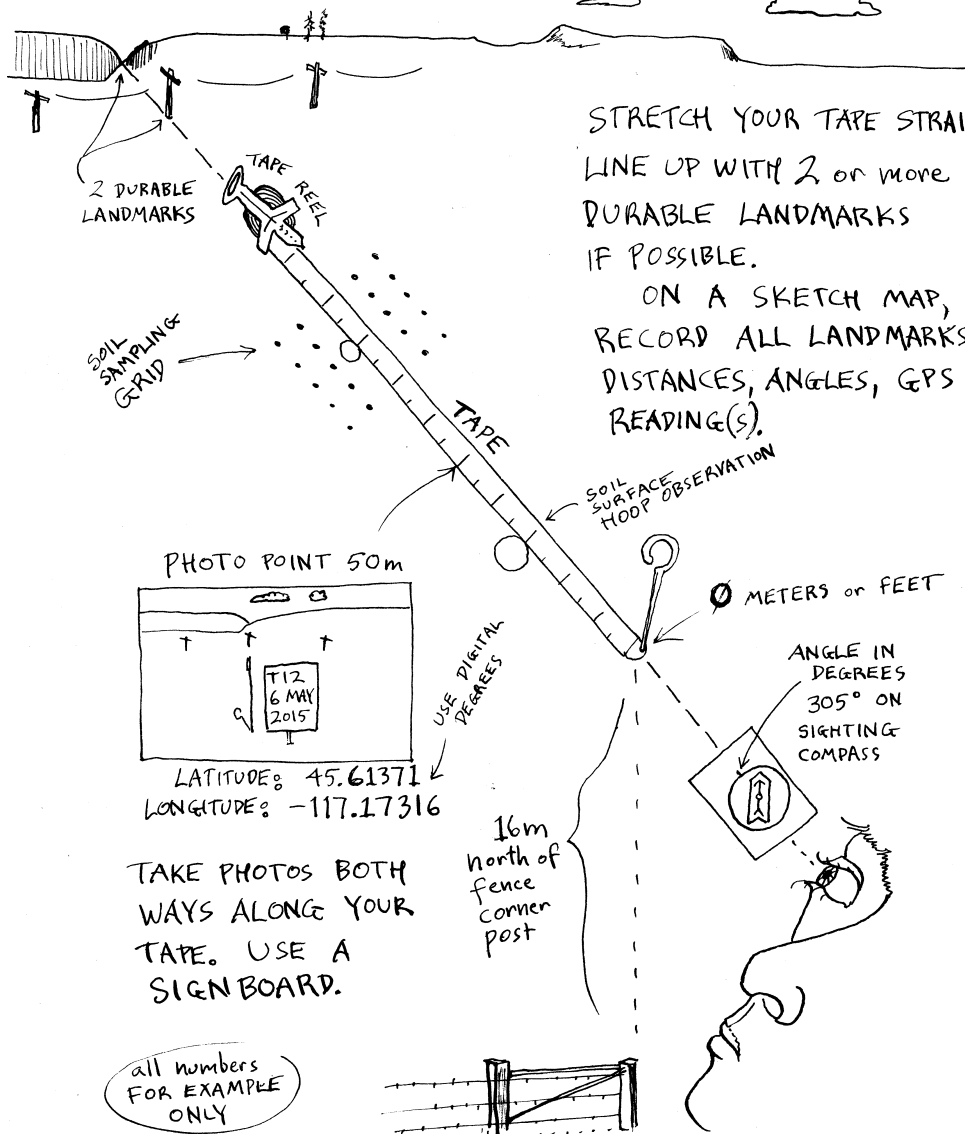 STRETCH YOUR TAPE STRAI
LINE UP WITH 2 or more
DURABLE LANDMARKS
IF POSSIBLE.
ON A SKETCH MAP,
RECORD ALL LANDMARKS
DISTANCES, ANGLES, GPS
READING(S).
2 DURABLE
LANDMARKS
TAPE REEL
SOIL
SAMPLING
GRID
TAPE
SOIL
SURFACE
HOOP OBSERVATION
PHOTO POINT 50m
T12
6 MAY
2015
USE DIGITAL
DEGREES
LATITUDE: 45.61371
LONGITUDE: -117.17316
0 METERS or FEET
ANGLE IN
DEGREES
305° ON
SIGHTING
COMPASS
16m
north of
fence
corner
post
TAKE PHOTOS BOTH
WAYS ALONG YOUR
TAPE. USE A
SIGNBOARD.
all numbers
FOR EXAMPLE
ONLY